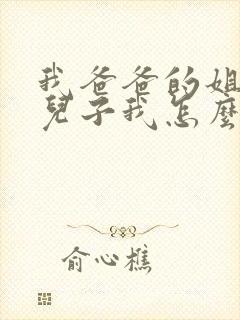 我爸爸的姐
兒子我怎麼
俞心樵